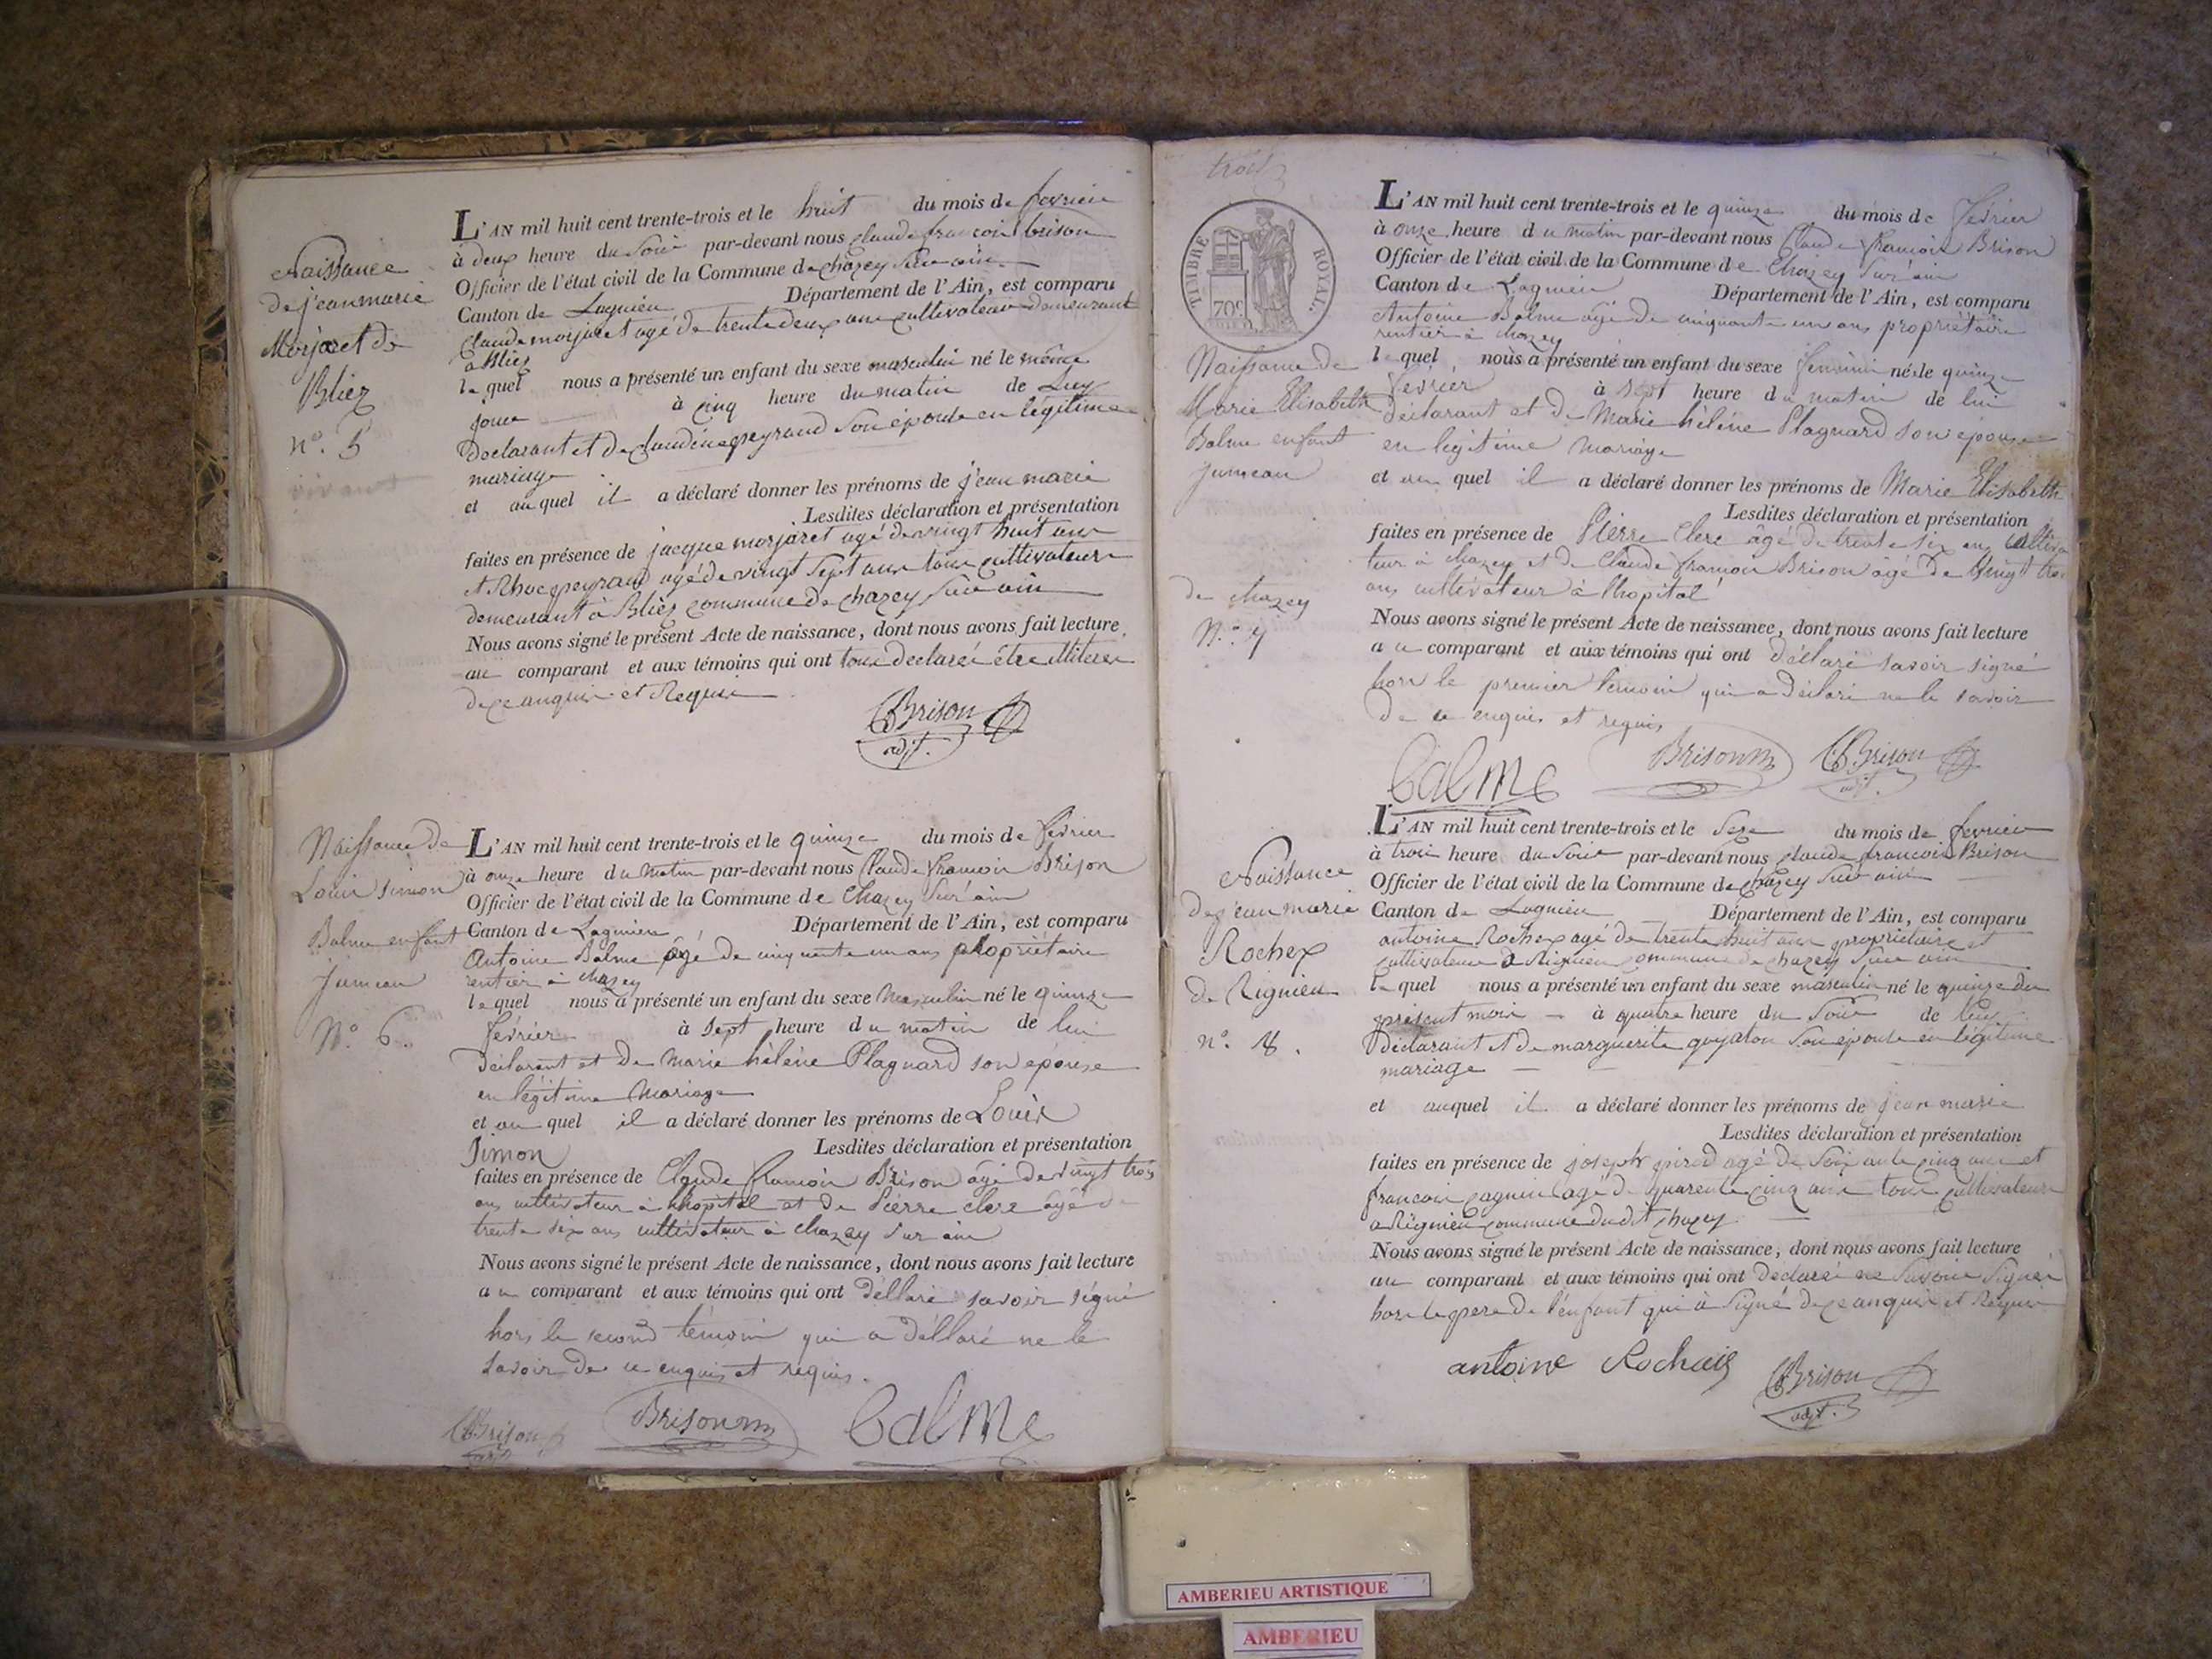 Naissance
de jean marie
Morjaret de
Bliez
n°. 5
vivant
L'AN mil huit cent trente-trois et le huit du mois de fevrier
à deux heure du Soir par-devant nous claude francois brison
Officier de l'état civil de la Commune de chazey Sur ain
Canton de Lagnieu Département de l'Ain, est comparu
Claude morjaret agé de trente deux ans cultivateur demeurant
a Bliez
le quel nous a présenté un enfant du sexe masculin né le même
jour à cinq heure du matin de Luy
Declarant et de claudine peyraud Son épouse en légitime
mariage
et au quel il a déclaré donner les prénoms de jean marie
Lesdites déclaration et présentation
faites en présence de jacque morjaret agé de vingt huit ans
et Rhoc peyraud agé de vingt Sept ans tous cultivateurs
demeurant à Bliez commune de chazey Sur ain
Nous avons signé le présent Acte de naissance, dont nous avons fait lecture
au comparant et aux témoins qui ont tous declarés être illiteres
de ce anquis et Requis
CBrison
adjt.
Naissance de
Louis Simon
Balme enfant
jumeau
N°. 6.
L'AN mil huit cent trente-trois et le quinze du mois de février
à onze heure du matin par-devant nous Claude francois Brison
Officier de l'état civil de la Commune de Chazey Sur ain
Canton de Lagnieu Département de l'Ain, est comparu
Antoine Balme âgé de cinquante un ans propriétaire
rentier à chazey
le quel nous a présenté un enfant du sexe Masculin né le quinze
février à sept heure du matin de lui
déclarant et de Marie hélène Plagnard son epouse
en légitime Mariage
et au quel il a déclaré donner les prénoms de Louis
Simon Lesdites déclaration et présentation
faites en présence de Claude francois Brison âgé de vingt trois
ans cultivateur à lhopital et de Pierre Clere âgé de
trente six ans cultivateur à Chazey Sur ain
Nous avons signé le présent Acte de naissance, dont nous avons fait lecture
au comparant et aux témoins qui ont déllaré savoir signé
hors le second témoin qui a déllaré ne le
savoir de ce enquis et requis.
CBrison
Brison
balme
trois
TIMBRE ROYAL.
70c.
Naissance de
Marie Elisabeth
Balme enfant
jumeau
de chazey
N.° 7
L'AN mil huit cent trente-trois et le quinze du mois de février
à onze heure du matin par-devant nous Claude francois Brison
Officier de l'état civil de la Commune de Chazey Sur ain
Canton de Lagnieu Département de l'Ain, est comparu
Antoine Balme âgé de cinquante un ans propriétaire
rentier à chazey
le quel nous a présenté un enfant du sexe féminin né le quinze
février à sept heure du matin de lui
déclarant et de Marie hélène Plagnard son epouse
en légitime Mariage
et au quel il a déclaré donner les prénoms de Marie Elisabeth
Lesdites déclaration et présentation
faites en présence de Pierre Clere âgé de trente six ans cultiva
teur à chazey et de Claude francois Brison agé de vingt trois
ans cultivateur à lhopital
Nous avons signé le présent Acte de naissance, dont nous avons fait lecture
au comparant et aux témoins qui ont déllaré savoir signé
hors le premier témoin qui a déclaré ne le savoir
de ce enquis et requis
balme
Brison
CBrison
adjt.
Naissance
de jean marie
Rochex
de Rignieu
n°. 8.
L'AN mil huit cent trente-trois et le Seze du mois de fevrier
à trois heure du Soir par-devant nous claude francois Brison
Officier de l'état civil de la Commune de chazey Sur ain
Canton de Lagnieu Département de l'Ain, est comparu
antoine Rochex agé de trente huit ans proprietaire et
cultivateur à Rignieu commune de chazey Sur ain
le quel nous a présenté un enfant du sexe masculin né le quinze du
présent mois à quatre heure du Soir de Luy
Déclarant et de marguerite guyaton Son épouse en légitime
mariage
et auquel il a déclaré donner les prénoms de jean marie
Lesdites déclaration et présentation
faites en présence de joseph girod agé de Soixante cinq ans et
francois cagnin agé de quarente cinq ans tous cultivateurs
a Rignieu commune dudit chazey
Nous avons signé le présent Acte de naissance, dont nous avons fait lecture
au comparant et aux témoins qui ont declarés ne Savoir Signer
hors le pere de l'enfant qui à Signé de ce anquis et Requis
antoine Rochaix
CBrison
adjt.
AMBERIEU ARTISTIQUE
AMBERIEU